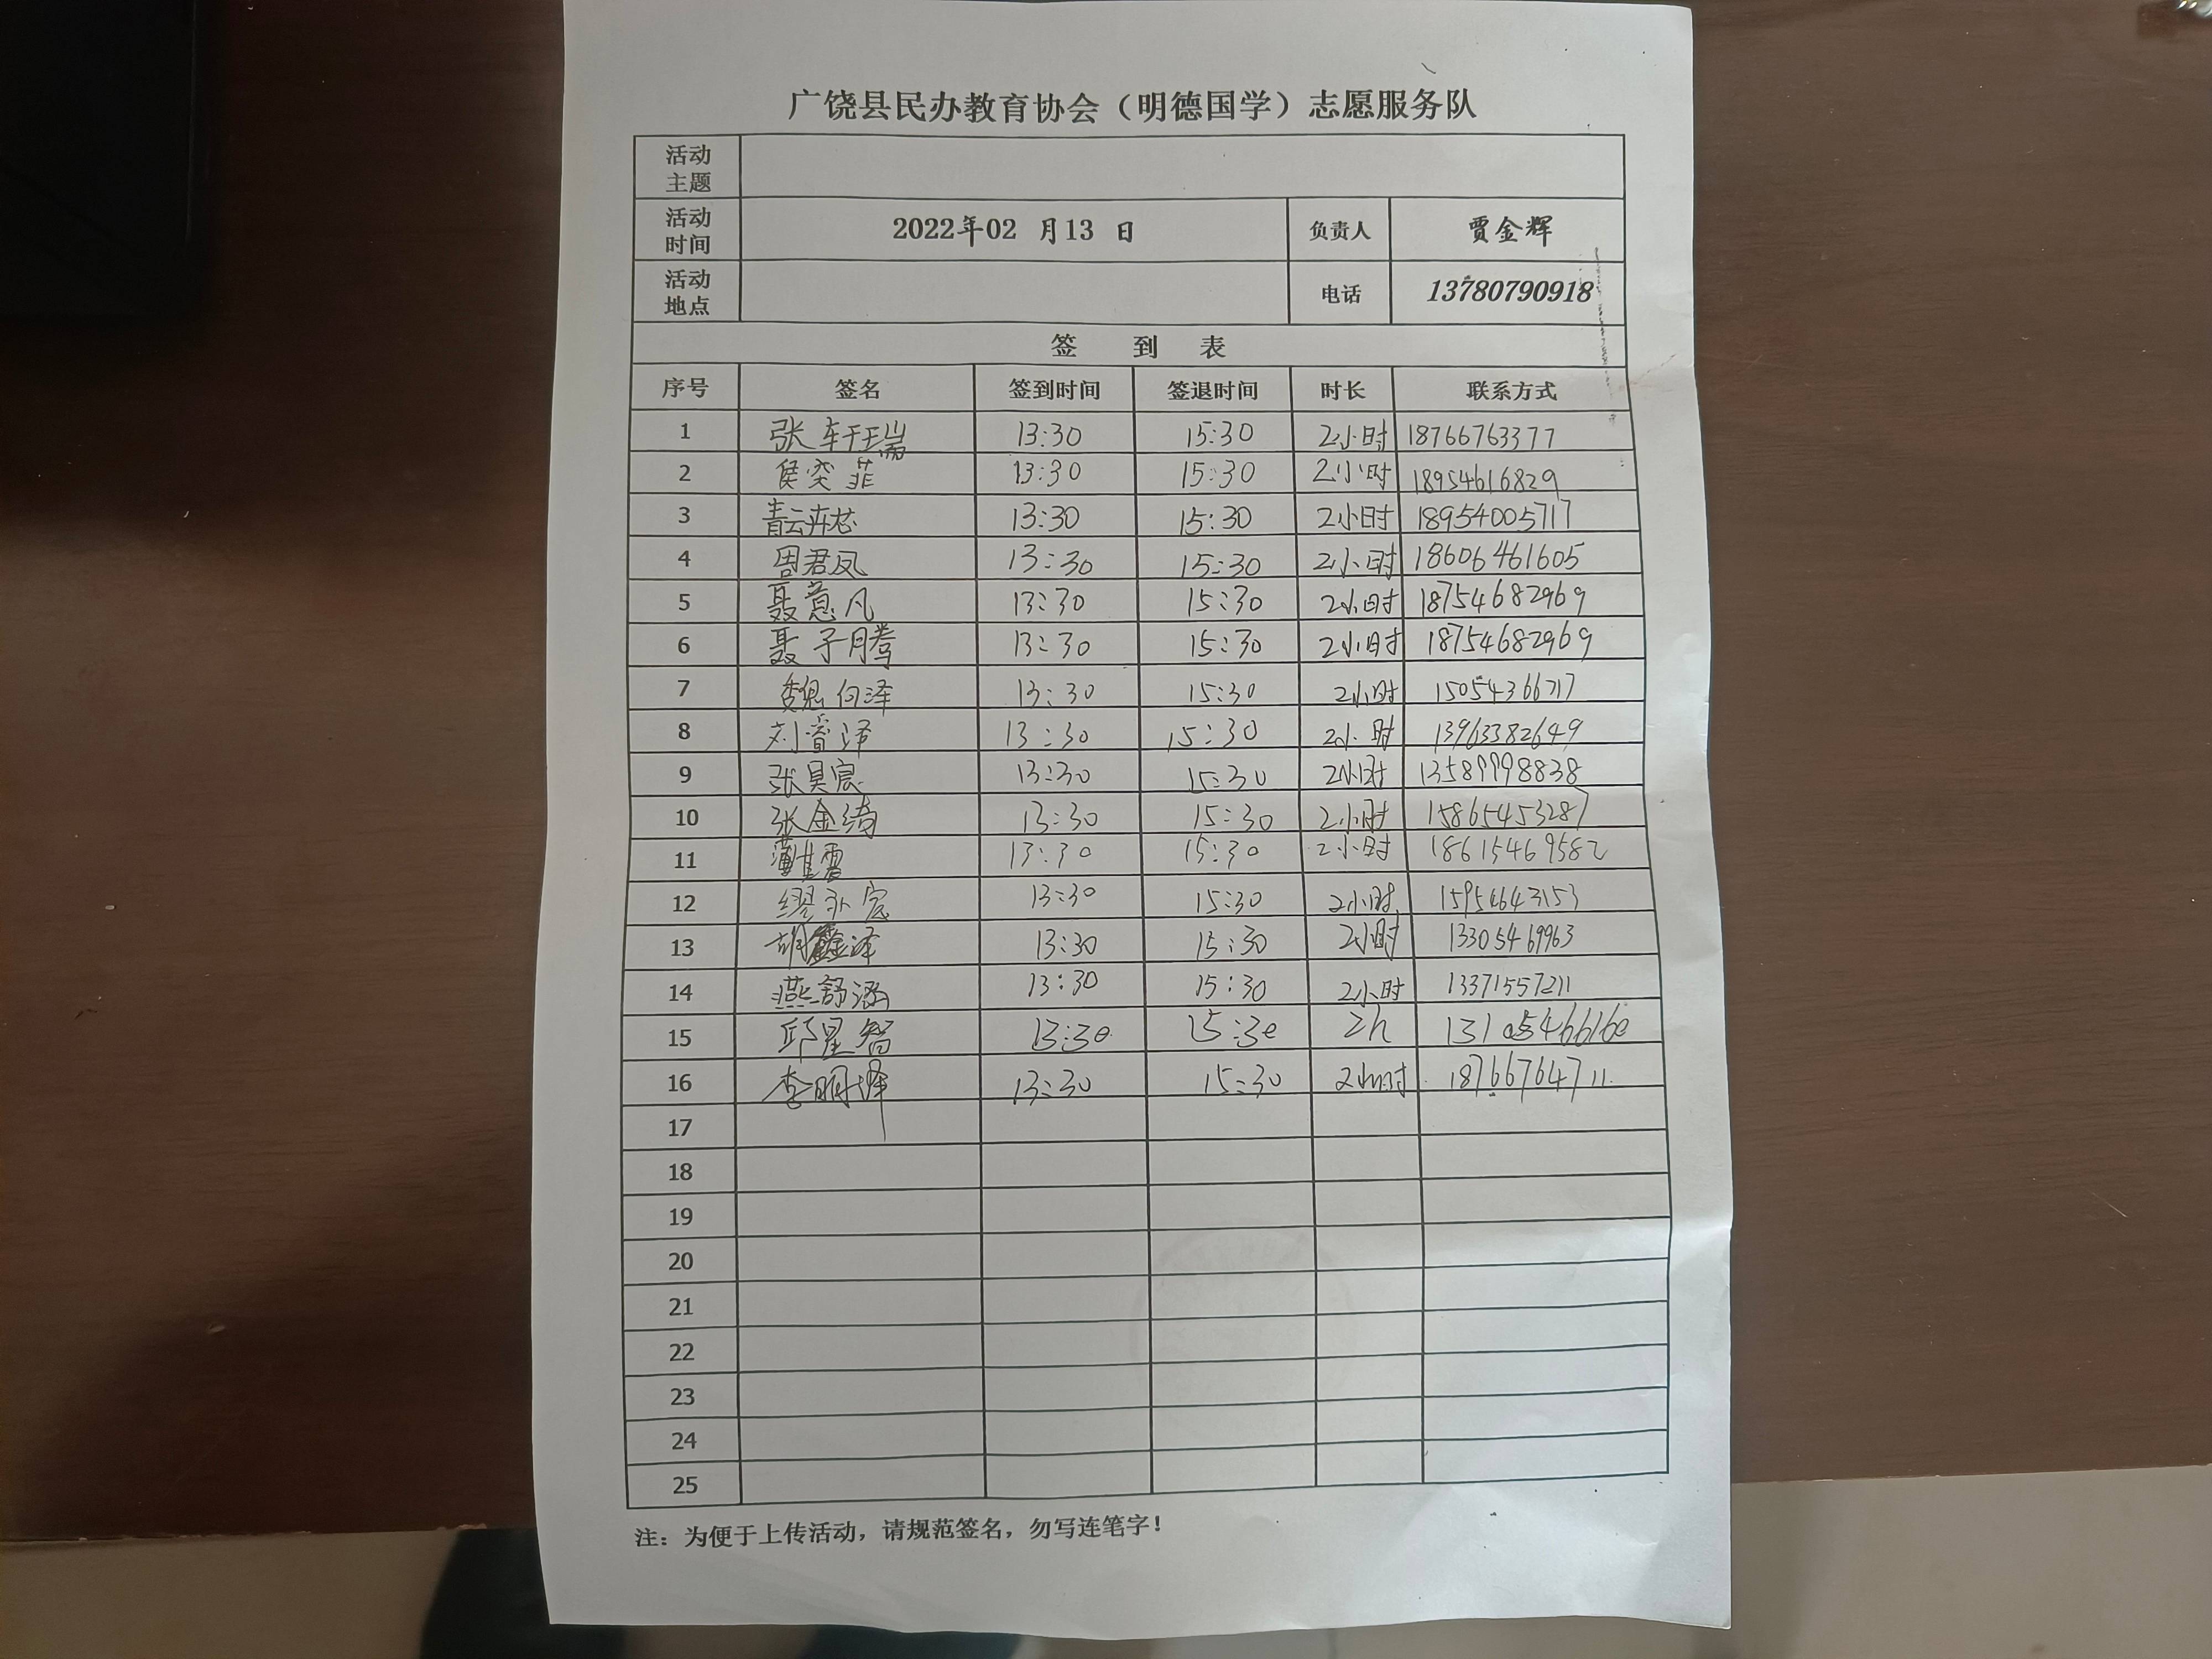 广饶县民办教育协会（明德国学）志愿服务队
活动主题
活动时间 2022年02 月13 日 负责人 贾金辉
活动地点 电话 13780790918
签 到 表
序号 签名 签到时间 签退时间 时长 联系方式
1 张轩瑞 13:30 15:30 2小时 18766763377
2 侯奕菲 13:30 15:30 2小时 18954616829
3 13:30 15:30 2小时 18954005717
4 周君凤 13:30 15:30 2小时 18606461605
5 聂意凡 13:30 15:30 2小时 18754682969
6 聂子腾 13:30 15:30 2小时 18754682969
7 魏向泽 13:30 15:30 2小时 15054366717
8 刘睿泽 13:30 15:30 2小时 13963382649
9 张昊宸 13:30 15:30 2小时 13589998838
10 张金绮 13:30 15:30 2小时 15865453287
11 13:30 15:30 2小时 18615469582
12 13:30 15:30 2小时 15954643153
13 胡鑫泽 13:30 15:30 2小时 13305469963
14 燕舒涵 13:30 15:30 2小时 13371557211
15 邱星智 13:30 15:30 2h 13105466160
16 李明泽 13:30 15:30 2小时 18766764711
17
18
19
20
21
22
23
24
25
注：为便于上传活动，请规范签名，勿写连笔字！